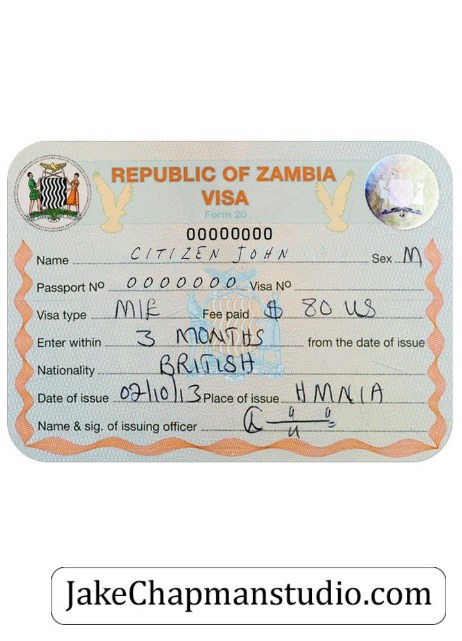 REPUBLIC OF ZAMBIA
VISA
Form 20
00000000
Name CITIZEN JOHN Sex M
Passport Nº 0000000 Visa Nº
Visa type MIE Fee paid $ 80 US
Enter within 3 MONTHS from the date of issue
Nationality BRITISH
Date of issue 02/10/13 Place of issue HMNIA
Name & sig. of issuing officer
JakeChapmanstudio.com